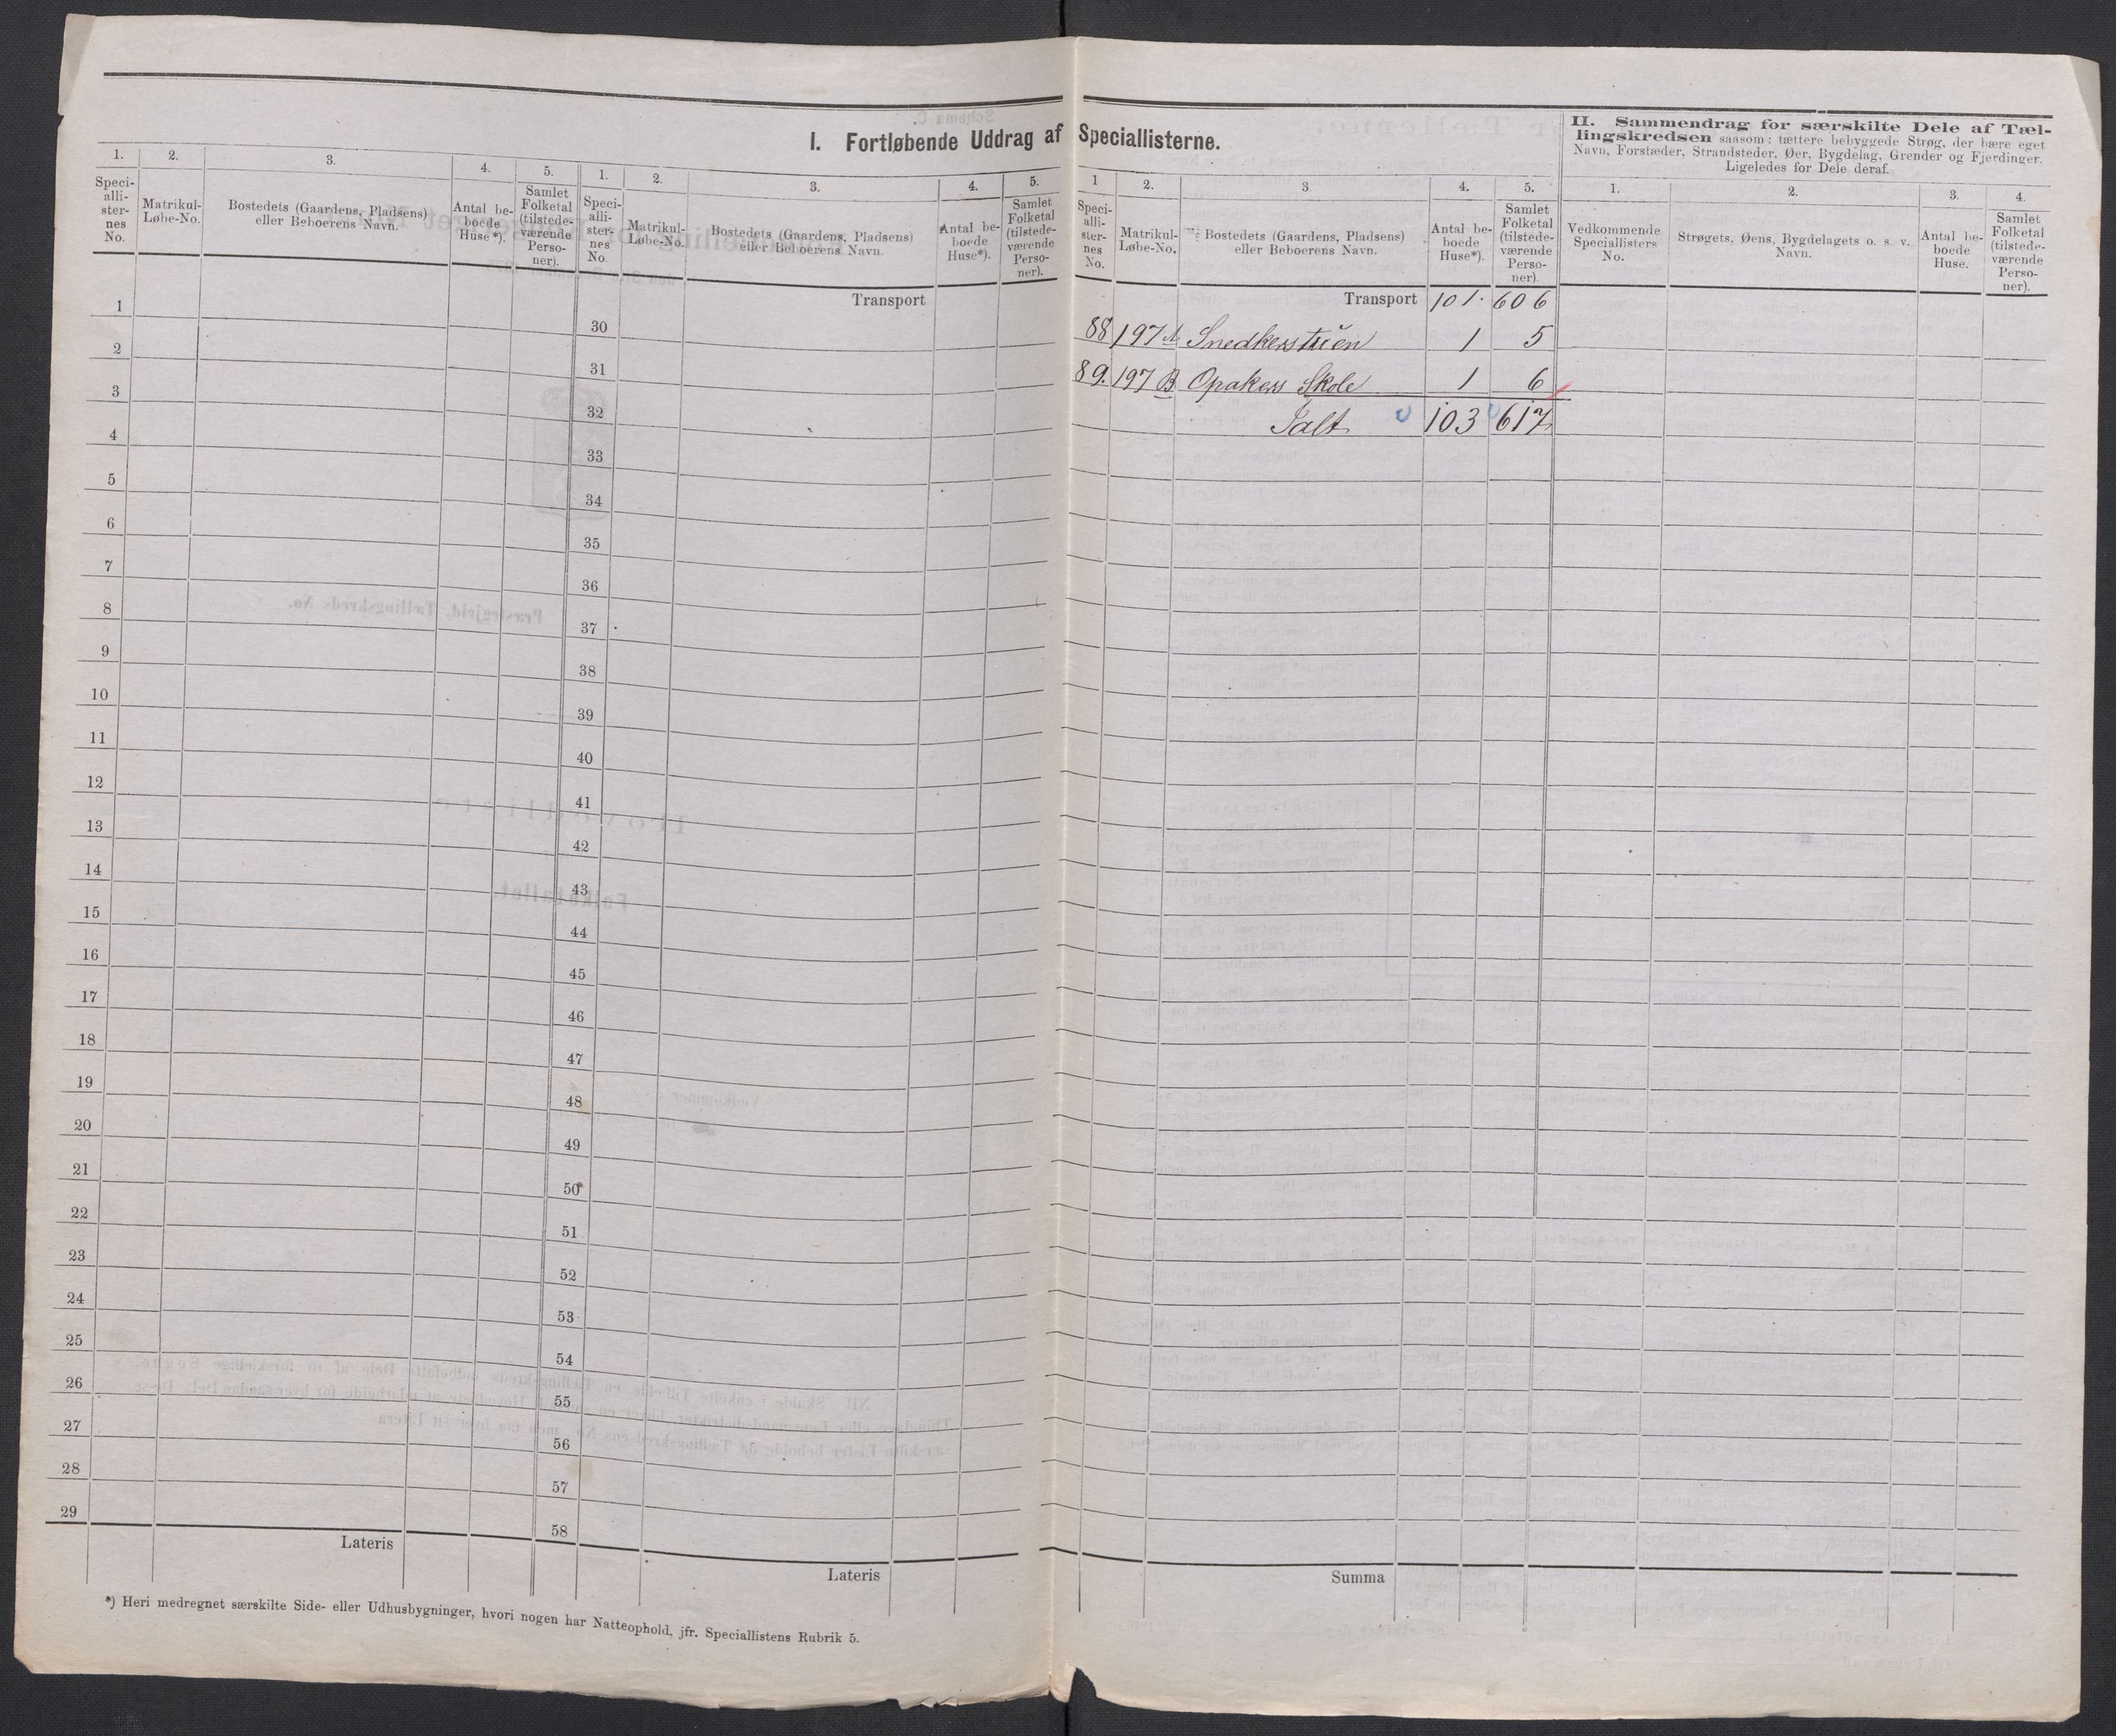 I. Fortløbende Uddrag af Speciallisterne.
1. 2. 3. 4. 5. 1. 2. 3. 4. 5.
Speci-
alli-
ster-
nes
No.
Matrikul-
Løbe-No.
Bostedets (Gaardens, Pladsens)
eller Beboerens Navn.
Antal be-
boede
Huse*).
Samlet
Folketal
(tilstede-
værende
Perso-
ner).
Speci-
alli-
ster-
nes
No.
Matrikul-
Løbe-No.
Bostedets (Gaardens, Pladsens)
eller Beboerens Navn.
Antal be-
boede
Huse*).
Samlet
Folketal
(tilstede-
værende
Perso-
ner).
1
2
3
4
5
6
7
8
9
10
11
12
13
14
15
16
17
18
19
20
21
22
23
24
25
26
27
28
29
Lateris
Transport
30
31
32
33
34
35
36
37
38
39
40
41
42
43
44
45
46
47
48
49
50
51
52
53
54
55
56
57
58
Lateris
*) Heri medregnet særskilte Side- eller Udhusbygninger, hvori nogen har Natteophold, jfr. Speciallistens Rubrik 5.
1 2. 3. 4. 5.
Speci-
alli-
ster-
nes
No.
Matrikul-
Løbe-No.
Bostedets (Gaardens, Pladsens)
eller Beboerens Navn.
Antal be-
boede
Huse*).
Samlet
Folketal
(tilstede-
værende
Perso-
ner).
Transport 101. 606
88 197A Snedkerstuen 1 5
89. 197 B Opakers Skole 1 6
Ialt 103 617
Summa
II. Sammendrag for særskilte Dele af Tæl-
lingskredsen saasom: tættere bebyggede Strøg, der bære eget
Navn, Forstæder, Strandsteder, Øer, Bygdelag, Grender og Fjerdinger.
Ligeledes for Dele deraf.
1. 2. 3. 4.
Vedkommende
Speciallisters
No.
Strøgets, Øens, Bygdelagets o. s. v.
Navn.
Antal be-
boede
Huse.
Samlet
Folketal
(tilstede-
værende
Perso-
ner).